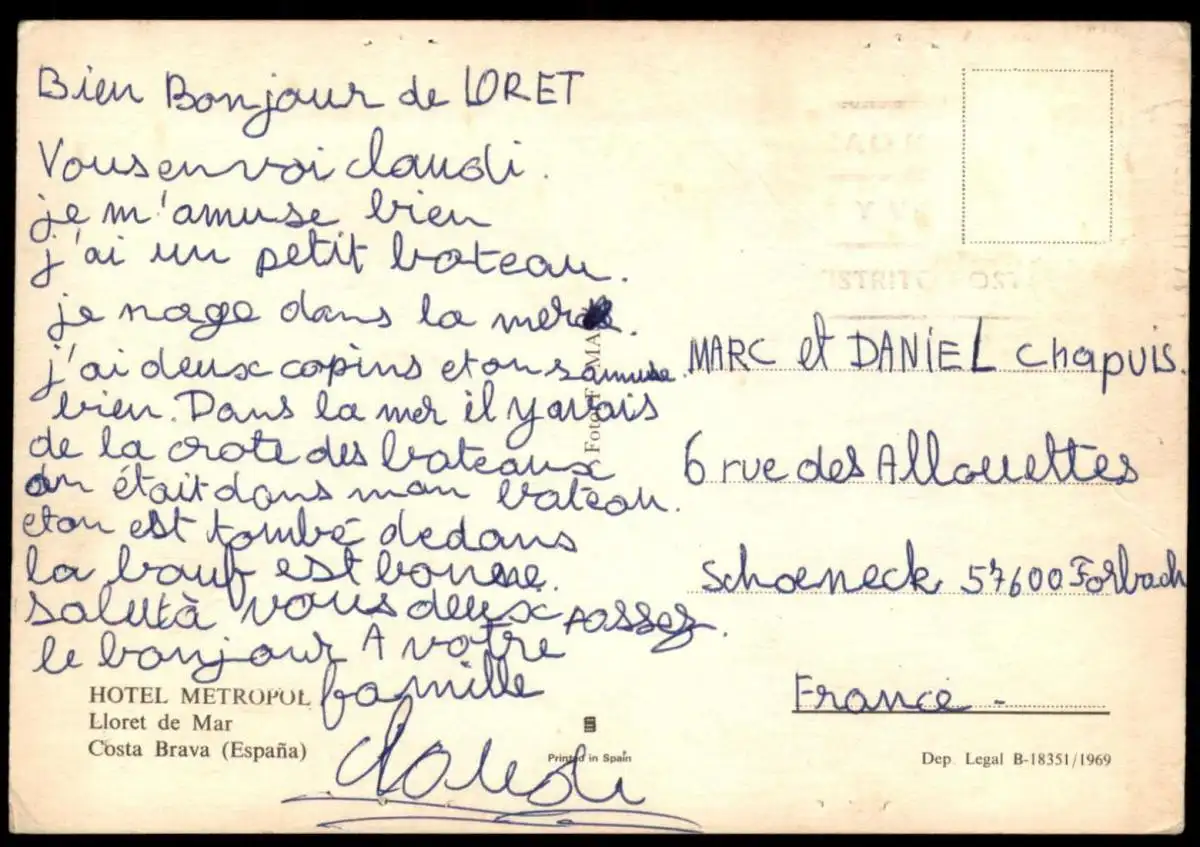 Bien Bonjour de LORET
Vous envoi claudi.
je m'amuse bien
j'ai un petit bateau.
je nage dans la mer.
j'ai deux copins et on s amuse.
bien. Dans la mer il y avais
de la crote des bateaux
on était dans mon bateau.
et on est tombé dedans
la bouf est bonne.
salut à vous deux passez.
le bonjour A votre
famille
claudi
MARC et DANIEL Chapuis.
6 rue des Allouettes
Schoeneck 57600 Forbach
France -
HOTEL METROPOL
Lloret de Mar
Costa Brava (España)
Printed in Spain
Dep. Legal B-18351/1969